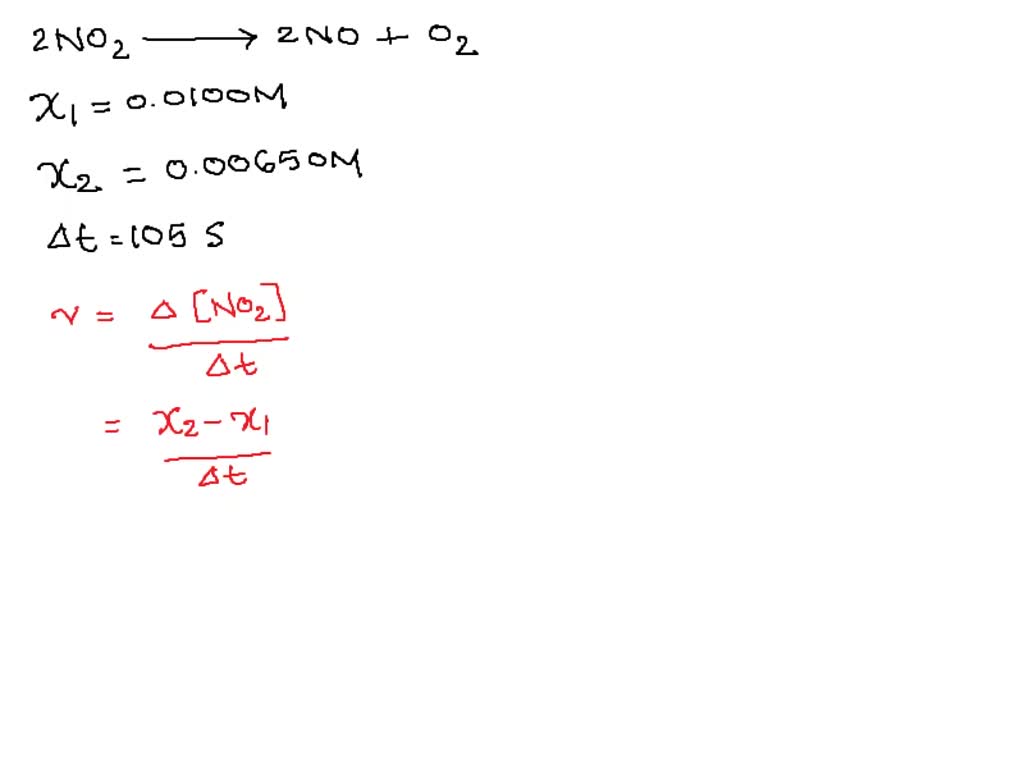 2NO₂ ⟶ 2NO + O₂
x₁ = 0.0100M
x₂ = 0.00650M
Δt = 105 S
r = Δ[NO₂] / Δt
= x₂ - x₁ / Δt